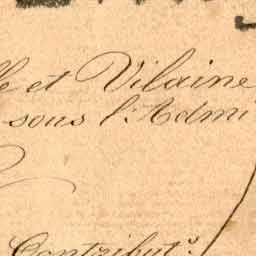 et Vilaine
sous l'Admi
Contribut.